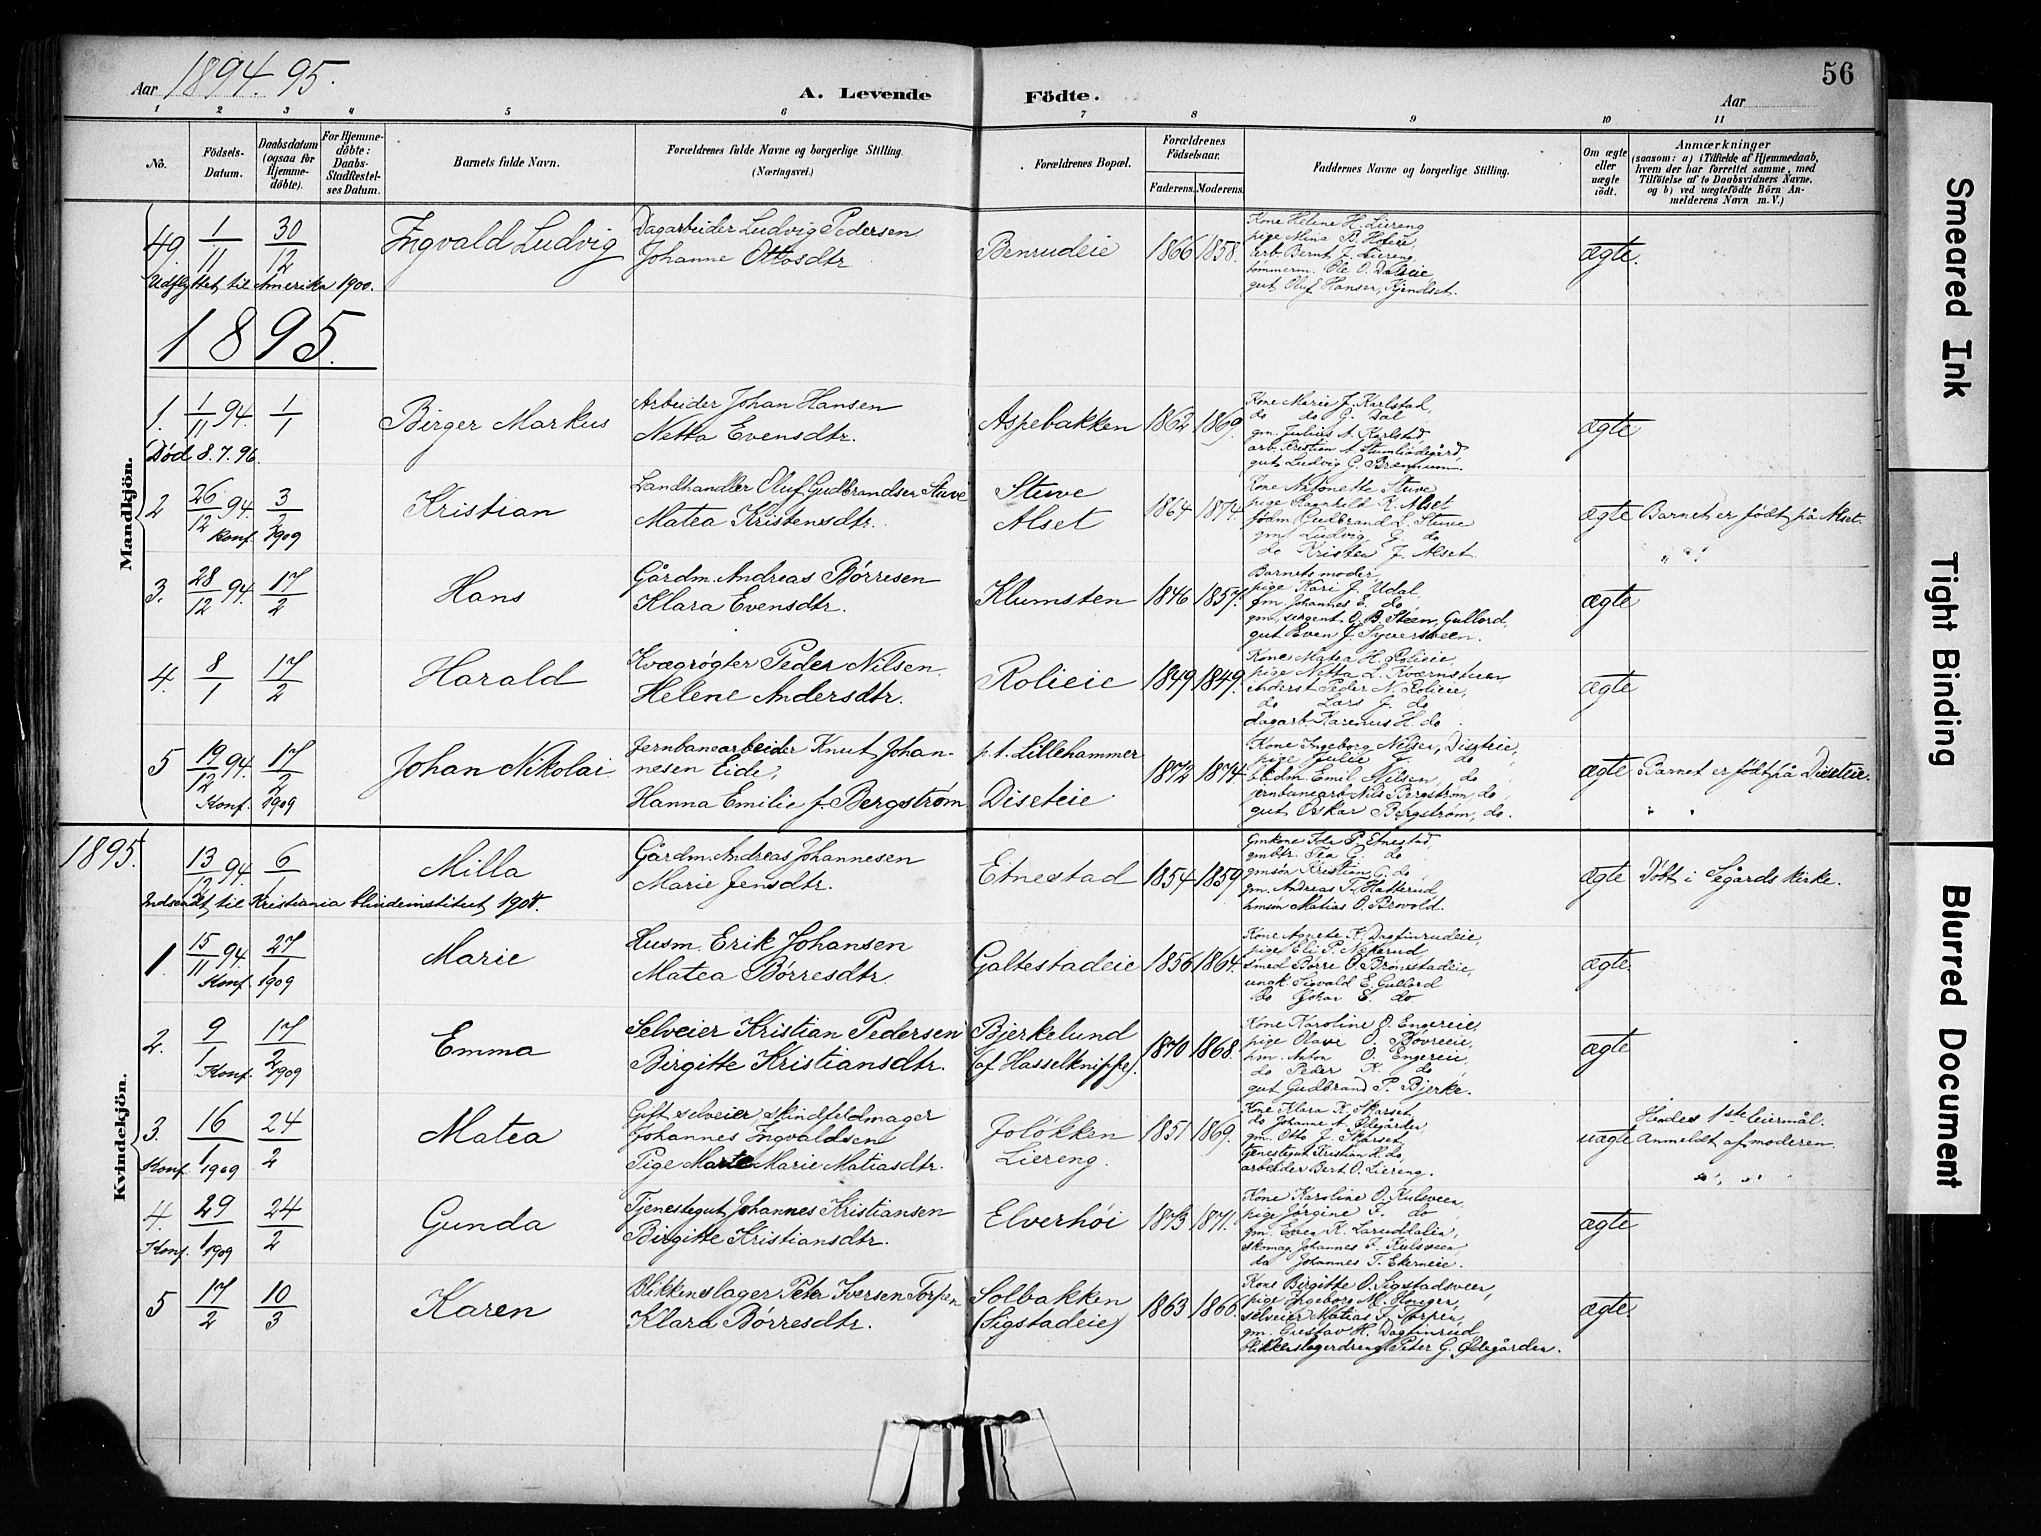 56
Aar 1894.95.
A. Levende Födte.
Aar
1 2 3 4 5 6 7 8 9 10 11
No.
Födsels-Datum.
Daabsdatum (ogsaa for Hjemme-döbte).
For Hjemme-döbte: Daabs-Stadfestel-ses Datum.
Barnets fulde Navn.
Forældrenes fulde Navne og borgerlige Stilling. (Næringsvei.)
Forældrenes Bopæl.
Forældrenes Födselsaar.
Faderens. Moderens.
Faddernes Navne og borgerlige Stilling.
Om ægte eller uægte födt.
Anmærkninger
(saasom: a) i Tilfælde af Hjemmedaab, hvem der har forrettet samme, med Tilföielse af to Daabsvidners Navne, og b) ved uægtefödte Börn An-melderens Navn m. V.)
Mandkjön.
49 1/11 30/12 Ingvald Ludvig
Dagarbeider Ludvig Pedersen
Johanne Ottosdtr
Benrudeie 1866 1858.
Kone Helene H. Liereng
pige Mina B. Hofeie,
arb. Bernt J. Liereng,
tømmerm. Ole O. Dalseie
gut Oluf Hansen, Kjendset.
ægte.
Udflyttet til Amerika 1900.
1895.
1. 1/11 94. 1/1 Birger Markus
Arbeider Johan Hansen
Netta Evensdtr.
Aspebakken 1862 1869.
Kone Marie J. Karlstad,
do do G. Dal
gm. Julius A. Karlstad,
arb. Kristian A. Stumliødegård,
gut Ludvig G. Brennum.
ægte
Død 8.7.96.
2 26/12 94. 3/2 Kristian
Konf. 1909
Landhandler Oluf Gudbrandsen Stuve
Matea Kristensdtr.
Stuve
Alset
1864 1874.
Kone Antonette Stuve
pige Ragnhild K. Alset
fødm Gudbrand L. Stuve
gm. Ludvig G. do
do Kristen J. Alset
ægte Barnet er født på Alset.
3. 28/12 94. 17/2 Hans
Gårdm. Andreas Børresen
Klara Evensdtr.
Klumsten 1846 1857.
Barnets moder,
pige Kari J. Udal,
gm. Johannes E. do,
gm, sergent. O. B. Steen, Gullord,
gut Even J. Syversveen.
ægte
4. 8/1 17/2 Harald
Kvægrøgter Peder Nilsen
Helene Andersdtr.
Rolieie 1849 1849.
Kone Matea H. Rolieie,
pige Netta L. Kværnstuen
inderst Peder N. Rolieie,
do Lars J. do
dagarb. Karenus H. do
ægte
5 19/12 94. 17/2 Johan Nikolai
Konf. 1909
Jernbanearbeider Knut Johan-
nesen Eide,
Hanna Emilie f. Bergstrøm
p.t. Lillehammer
Diseteie
1872 1874
Kone Ingeborg Nelsen, Diseteie,
pige Julie J. do
bådm. Emil Nilsen do
jernbanearb Nils Bergstrøm, do
gut Oskar Bergstrøm, do.
ægte Barnet er født på Diseteie.
" "
Kvindekjön.
1895. 13/12 94. 6/1 Milla
Gårdm. Andreas Johannesen
Marie Jensdtr.
Etnestad 1854 1859
Gmkone Ida P. Etnestad,
gmdtr. Tea G. do
gmsøn Kristian G. do,
gm. Andreas T. Hatterud
hmsøn Matias O. Brovold.
ægte Døbt i Segårds kirke.
Indsendt til Kristiania blindeinstitut 1904.
1. 15/11 94. 27/1 Marie
Konf. 1909
Husm. Erik Johansen
Matea Børresdtr.
Galtestadeie 1856 1864.
Kone Agnete K. Dagfinrudeie,
pige Eli P. Nøkerud,
smed Børre O. Brønstadeie,
ungk. Sigvald E. Gullord
do Johan E. do
ægte.
2. 9/1 17/2 Emma
Konf. 1909
Selveier Kristian Pedersen
Birgitte Kristiansdtr.
Bjerkelund
(af Hasselknippe).
1870 1868.
Kone Karoline O. Engereie,
pige Olave O. Bøvreeie,
hm. Anton O. Engereie,
do Peder K. do,
gut Gudbrand P. Bjerke.
ægte
3. 16/1 24/2 Matea
Konf. 1909
Gift selveier, skindfeldmager
Johannes Ingvaldsen
Pige Marte Marie Matiasdtr.
Joløkken
Liereng.
1851 1869.
Kone Klara K. Skarset,
do Johanne A. Ødegården,
gm. Otto J. Skarset,
Tjenestegut Kristian H. do,
arbeider Bert. O. Liereng.
uægte
Hendes 1ste leiermål.
Anmeldt af moderen
4. 29/1 24/2 Gunda
Konf. 1909
Tjenestegut Johannes Kristiansen
Birgitte Kristiansdtr.
Elverhøi 1873 1871.
Kone Karoline O. Kulsveen,
pige Jørgine F. do
gm. Even K. Laruddalen,
skomag. Johannes F. Kulsveen,
do Johannes T. Ekerneie.
ægte
5 17/2 10/3 Karen
Blikkenslager Peter Iversen Torpen
Klara Børresdtr.
Solbakken
(Sigstadeie)
1863 1866.
Kone Birgitte O. Sigstadsveen,
pige Ingeborg M. Hougen,
selveier Matias J. Torpen,
gm. Gustav H. Dagfinrud,
blikkenslagerdreng Peter G. Ødegården.
ægte.
Smeared Ink
Tight Binding
Blurred Document